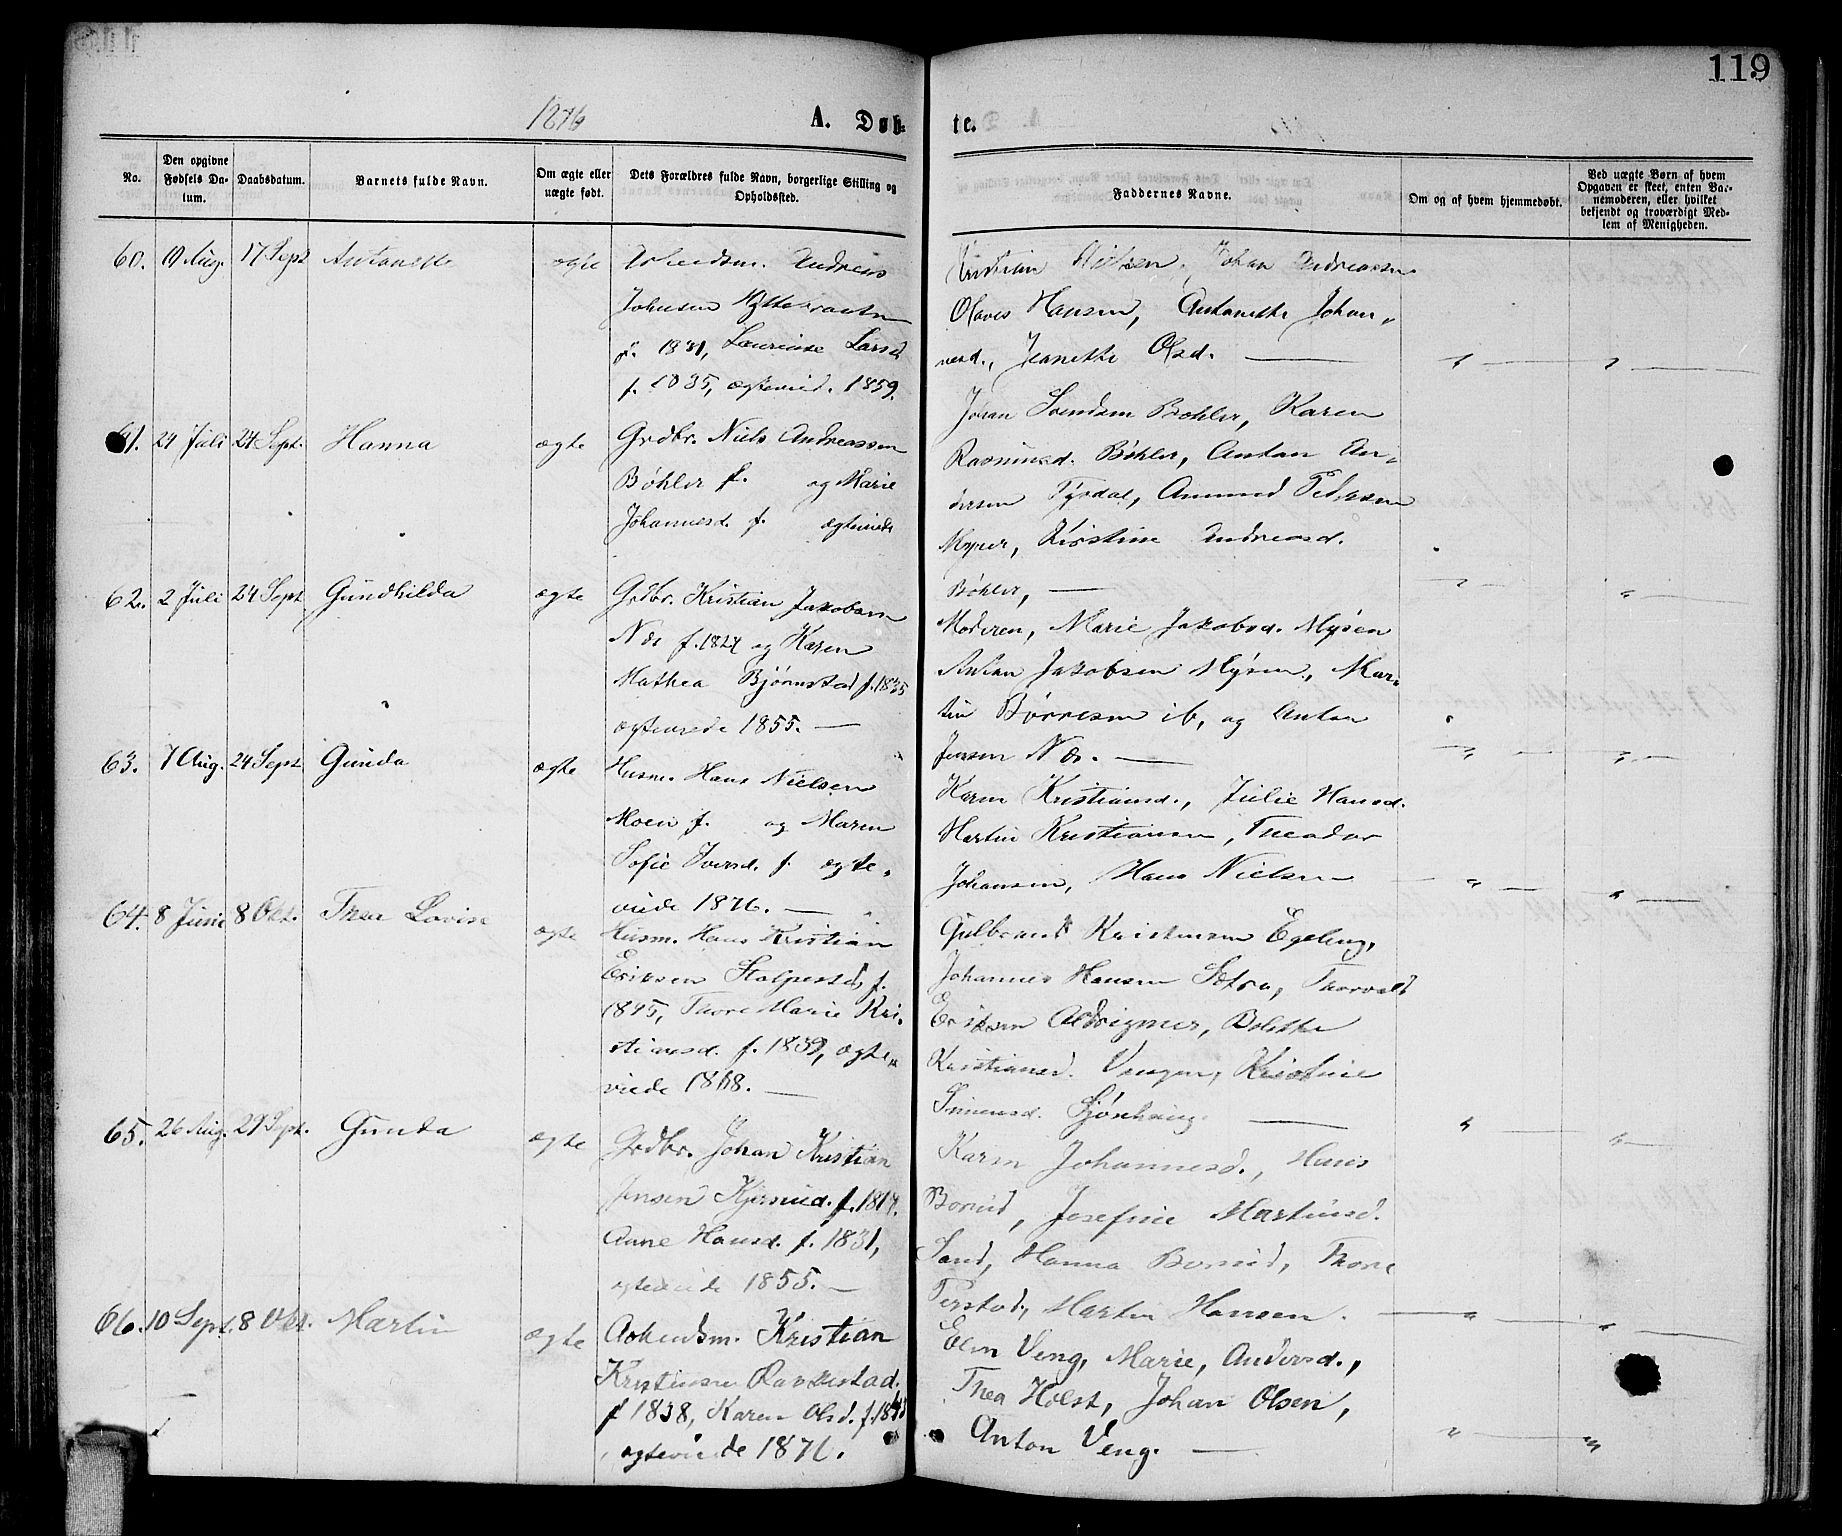 119
1876
A. Døb-
te.
No.
Den opgivne Fødsels Da-
tum.
Daabsdatum.
Barnets fulde Navn.
Om ægte eller
uægte født.
Dets Forældres fulde Navn, borgerlige Stilling og
Opholdssted.
Faddernes Navne.
Om og af hvem hjemmedøbt.
Ved uægte Børn af hvem
Opgaven er skeet, enten Bar-
nemoderen, eller hvilket
bekjendt og troværdigt Med-
lem af Menigheden.
60. 19 Aug. 17 Sept Antonette ægte Arbeidsm. Andreas
Johnsen
f. 1831, Laurense Larsd
f. 1835, ægteviede. 1859.
Kristian Nielsen, Johan Andreassen
Olaves Hansen, Antonette Johan-
nesd., Jeanette Olsd. —
61. 24 Juli 24 Sept. Hanna ægte Grdbr. Niels Andreassen
Bøhler f. og Marie
Johannesd. f. ægteviede
Johan Svendsen Bøhler, Karen
Rasmusd. Bøhler, Anton An-
dersen Tyrdal, Amund Pedersen
Myrer, Kristine Andreasd.
Bøhler, —
62. 2 Juli 24 Sept Gundhilda ægte Grdbr. Kristian Jakobsen
Næs f. 1827 og Karen
Mathea Bjørnstad f. 1835
ægteviede 1855. —
Moderen, Marie Jakobsd. Mysen
Anton Jakobsen Mysen, Mar-
tin Børresen ib, og Anton
Jensen Næs. —
63. 7 Aug. 24 Sept Gunda ægte Husm. Hans Nielsen
Moen f. og Maren
Sofie Iversd. f. ægte-
viede 1876. —
Karen Kristiansd., Julie Hansd.
Martin Kristiansen, Theodor
Johansen, Hans Nielsen
64. 8 Juni 8 Okt. Thea Lovise ægte Husm. Hans Kristian
Eriksen Stolpestad, f.
1845, Thore Marie Kri-
stiansd. f. 1839, ægte-
viede 1868. —
Gulbrand Kristiansen Egeberg,
Johannes Hansen Sætra, Thorvald
Eriksen Aldrigmer, Bolette
Kristiansd. Vengen, Kristine
Simensd. —
65. 26 Aug. 29 Sept. Gunda ægte Grdbr. Johan Kristian
Jensen Kjersund. f. 1817.
Anne Hansd. f. 1831,
ægteviede 1855. —
Karen Johannesd., Hans
Borud, Josefine Martinsd.
Sand, Hanna Borud, Thore
Perstad, Martin Hansen. —
66. 10 Sept. 8 Okt. Martin ægte Arbeidsm. Kristian
Kristiansen Ravnestad
f 1838, Karen Olsd. f.
ægteviede 1876.
Elen Veng, Marie, Andersd.,
Thea Holst, Johan Olsen,
Anton Veng. —